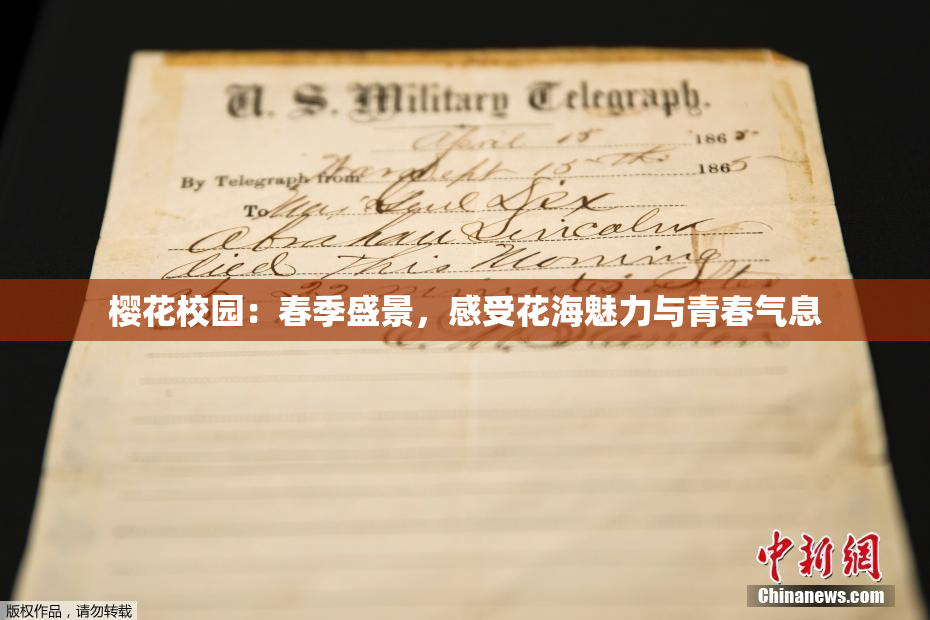 U. S. Military Telegraph.
April 15 1865
By Telegraph from War Dept 15th 1865
To Maj Genl Dix
Abraham Lincoln
died This Morning
at 22 minutes after
樱花校园：春季盛景，感受花海魅力与青春气息
E. M. Stanton
中新網
Chinanews.com
版权作品，请勿转载